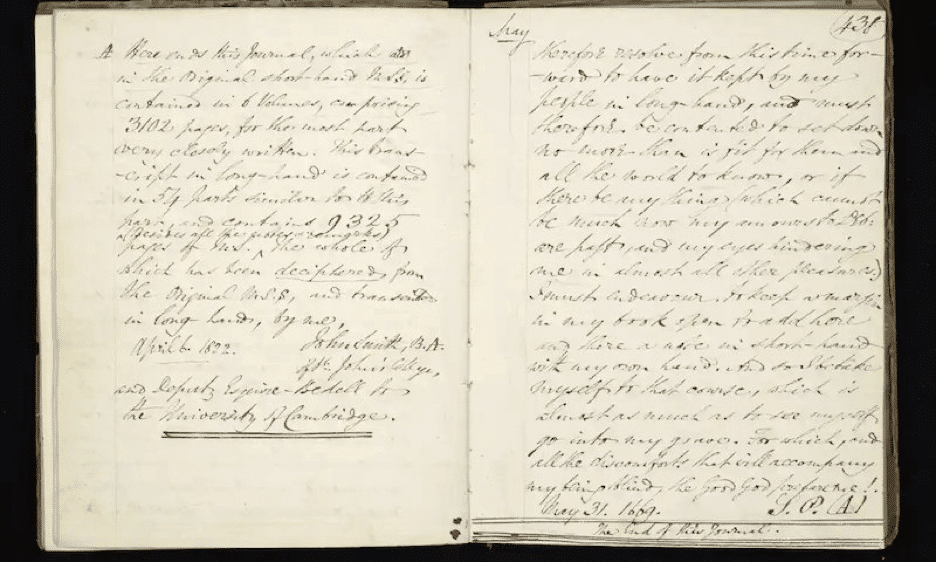 A Here ends this Journal, which
in the Original short-hand M.S.S. is
contained in 6 Volumes, comprising
3102 pages, for the most part
very closely written. This trans-
-cript in long-hand is contained
in 54 parts similar to this
part, and contains 9325
(besides all the notes &
pages of M.S. The whole of
which has been deciphered, from
the Original M.S.S., and transcribed
in long hand, by me,
April 6 1822. John Smith, B.A.
of St. John's College,
and Deputy Esquire-Bedell to
the University of Cambridge.
May (438
therefore resolve from this time for-
-ward to have it kept by my
people in long-hand, and must
therefore be contented to set down
no more than is fit for them and
all the world to know, or if
there be anything (which cannot
be much now my amours to Deb:
are past, and my eyes hindering
me in almost all other pleasures.)
I must endeavour to keep a margin
in my book open to add here
and there a note in short-hand
with my own hand. And so I betake
myself to that course, which is
almost as much as to see myself
go into my grave. For which, and
all the discomforts that will accompany
my being blind, the Good God prepare me!.
May 31. 1669. S. P. (A)
The End of this Journal.